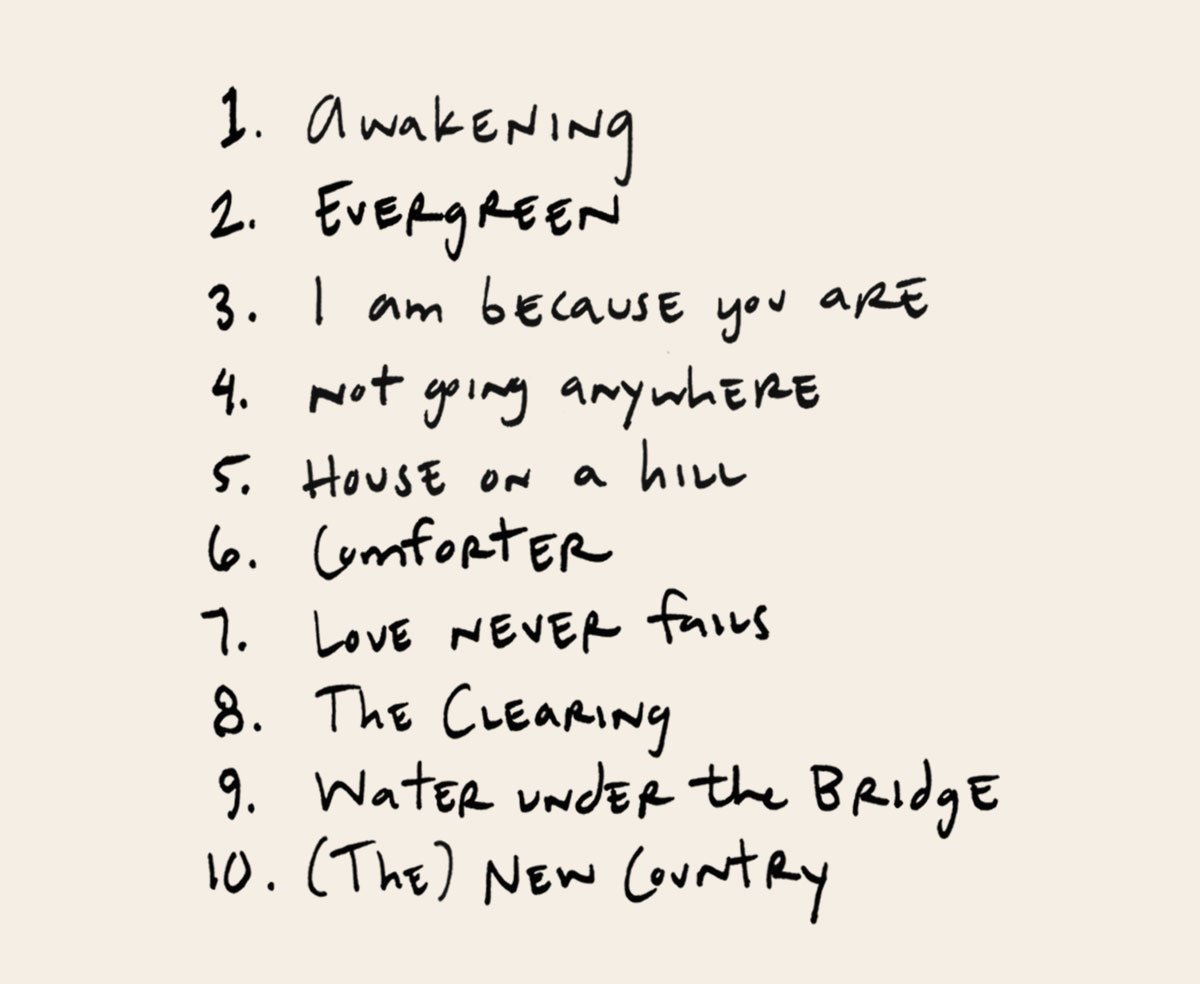 1. Awakening
2. Evergreen
3. I am because you are
4. Not going anywhere
5. House on a hill
6. Comforter
7. Love never fails
8. The Clearing
9. Water under the Bridge
10. (The) New Country